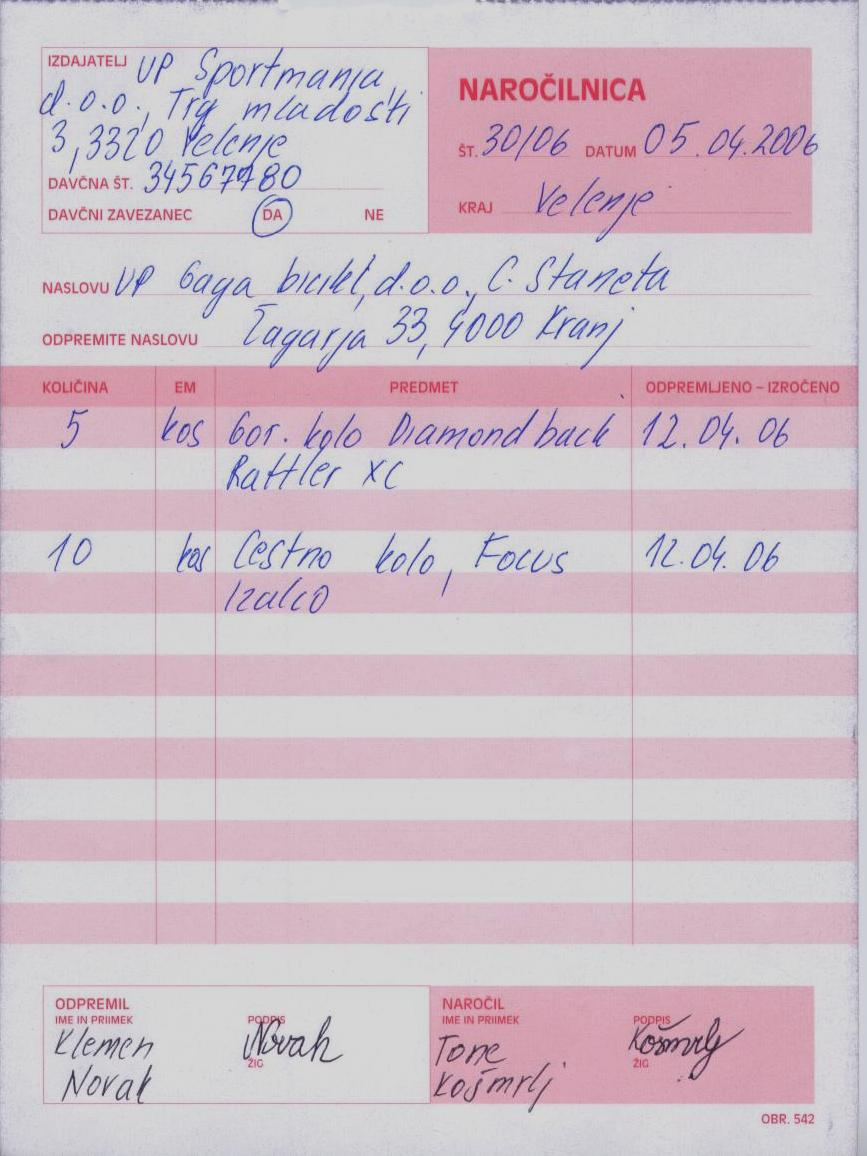 IZDAJATELJ UP Sportmanja,
d.o.o., Trg mladosti
3, 3320 Velenje
DAVČNA ŠT. 34567780
DAVČNI ZAVEZANEC DA NE
NAROČILNICA
ŠT. 30/06 DATUM 05.04.2006
KRAJ Velenje
NASLOVU UP Gaga bicikl, d.o.o., C. Staneta
ODPREMITE NASLOVU Žagarja 33, 4000 Kranj
KOLIČINA EM PREDMET ODPREMLJENO – IZROČENO
5 kos Gor. kolo Diamond back 12.04.06
Rattler XC
10 kos Cestno kolo, Focus 12.04.06
Izalco
ODPREMIL
IME IN PRIIMEK PODPIS
Klemen Novak
Novak
ŽIG
NAROČIL
IME IN PRIIMEK PODPIS
Tone Košmrlj
Košmrlj
ŽIG
OBR. 542